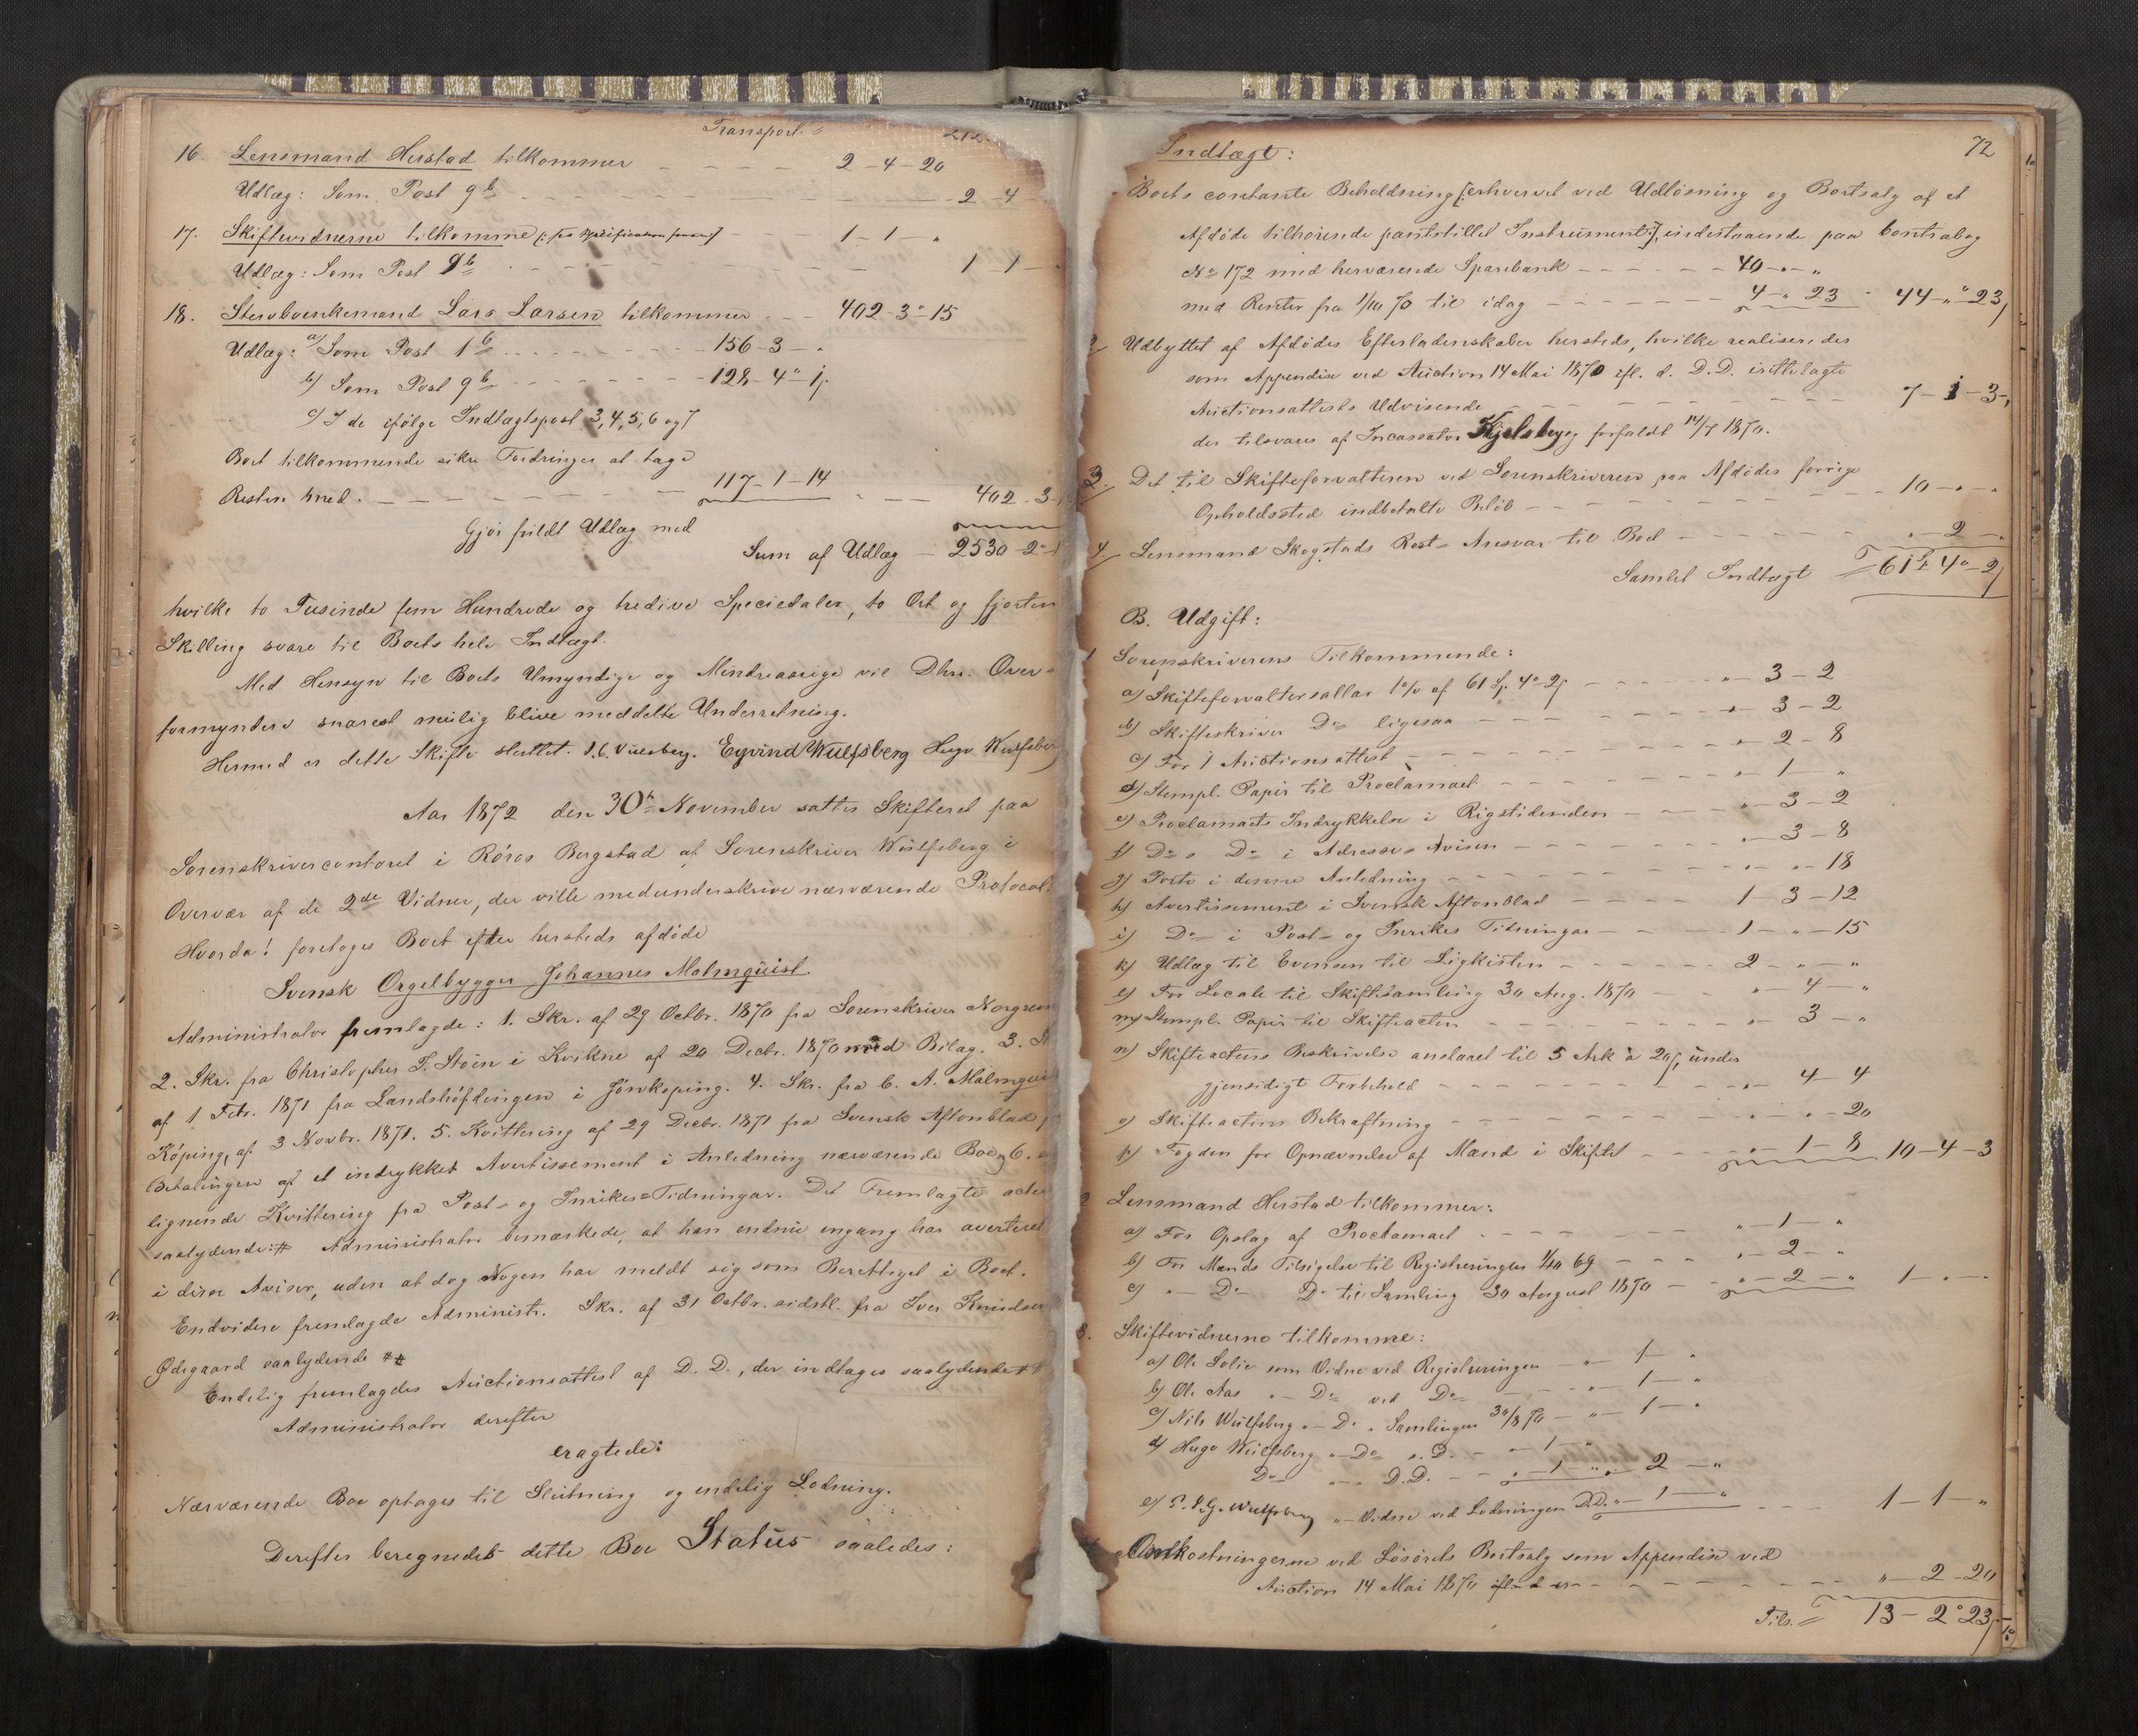 Transport
212
16. Lensmand Herstad tilkommer 2-4-20
Udlæg: Som Post 9b 2-4
17. Skiftevidnerne tilkomme 1-1-"
Udlæg: Som Post 9b 1-1-
18. Stervboenkemand Lars Larsen tilkommer 402-3-15
Udlæg: a) Som Post 1b 156-3-"
b) Som Post 9b 128-4-1
c) I de ifølge Indtægtspost 3, 4, 5, 6 og 7
Boet tilkommende sikre Fordringer at tage
Resten med 117-1-14 402-3-
Gjør fuldt Udlæg med
Sum af Udlæg 2530-2-
hvilke to Tusinde fem Hundrede og tredive Speciedaler, to Ort og fjorten
Skilling svare til Boets hele Indtægt.
Med Hensyn til Boets Umyndige og Mindreaarige vil Dhrr. Over-
formyndere snarest mulig blive meddelte Underretning.
Hermed er dette Skifte sluttet. Eyvind Wulfsberg Hugo Wulfsberg
Aar 1872 den 30te November sattes Skifteret paa
Sorenskrivercontoret i Røros Bergstad af Sorenskriver Wulfsberg i
Overvær af de 2de Vidner, der ville medunderskrive nærværende Protocol.
Hvorda! foretoges Boet efter hersteds afdøde
Svensk Orgelbygger Johannes Malmquist.
Administrator fremlagde: 1. Skr. af 29 Octbr. 1870 fra Sorenskriver
2. Skr. fra Christopher T. Støen i Kvikne af 20 Decbr. 1870 med Bilag. 3.
af 1 Febr. 1871 fra Landshöfdingen i Jönkøping. 4. Skr. fra C. A. Malmquist
Köping, af 3 Novbr. 1871. 5. Kvittering af 29 Decbr. 1871 fra Svensk Aftonblad
Betalingen af et indrykket Avertissement i Anledning nærværende Boe, 6.
lignende Kvittering fra Post- og Inrikes-Tidningar. Det Fremlagte
saalydende: # Administrator bemærkede, at han endnu engang har averteret
i disse Aviser, uden at dog Nogen har meldt sig som Berettiget i Boet.
Endvidere fremlagde Administr. Skr. af 31 Octbr. sidstl. fra Iver Knudsen
Ødegaard saalydende ##
Endelig fremlagdes Auctionsattest af D. D., der indtages saalydende
Administrator derefter
eragtede:
Nærværende Boe optages til Slutning og endelig Lodning.
Derefter beregnedes dette Boe Status saaledes:
72
Indtægt:
Boets contante Beholdning [: erhvervet ved Udløsning og Bortsalg af et
Afdøde tilhørende pantstillet Instrument :], indestaaende paa Contrabog
No 172 med herværende Sparebank 40-"-"
med Renter fra 1/10 70 til idag 4-"-23 44-"-23
2. Udbyttet af Afdødes Efterladenskaber hersteds, hvilke realiseredes
som Appendix ved Auction 14 Mai 1870 efl. d. D.D. indtagte
Auctionsattests Udvisende 7-1-3
der tilsvares af Incassator Kjelsberg forfaldt 14/7 1870.
3. Det til Skifteforvalteren ved Sorenskriveren paa Afdødes forrige
Opholdssted indbetalte Beløb 10-"-"
4. Lensmand Skogstads Rest-Ansvar til Boet "-2-"
Samlet Indtægt 61-4-2
B. Udgift:
1 Sorenskriverens Tilkommende:
a) Skifteforvaltersallær 1% af 61 Sp. 4-2 "-3-2
b) Skifteskriver Do ligesaa "-3-2
c) For 1 Auctionsattest "-2-8
d) Stempl. Papir til Proclamaet "-1-"
e) Proclamaets Indrykkelse i Rigstidenden "-3-2
f) Do Do i Adresse-Avisen "-3-8
g) Porto i denne Anledning "-"-18
h) Avertissement i Svensk Aftonblad 1-3-12
i) Do i Post- og Inrikes Tidningar 1-"-15
k) Udlæg til Evensen til Ligkisten 2-"-"
l) For Locale til Skiftesamling 30 Aug. 1870 "-4-"
m) Stempl. Papir til Skifteacten "-3-"
n) Skifteactens Beskrivelse anslaaet til 5 Ark à 20, under
gjensidigt Forbehold "-4-4
o) Skifteactens Bekræftning "-"-20
p) Fogden for Opnævnelse af Mænd i Skiftet "-1-8 10-4-3
Lensmand Herstad tilkommer:
a) For Opslag af Proclamaet "-1-"
b) For Mænds Tilsigelse til Registreringen 1/10 69 "-2-"
c) "- Do Do til Samling 30 August 1870 "-2-" 1-"-"
3. Skiftevidnerne tilkomme:
a) Ole Solie som Vidne ved Registreringen "-1-"
b) Ole Aas "-Do ved Do "-1-"
c) Nils Wulfsberg "-Do Samlingen 30/8 70 "-1-"
d) Hugo Wulfsberg "-Do "-D. "-1-"
Do "-" D.D. "-1-" "-2-"
e) Wulfsberg "-Vidne ved Lodningen D.D. "-1-" 1-1-"
Omkostningerne ved Løsørets Bortsalg som Appendix ved
Auction 14 Mai 1870 "-2-20
Tils. 13-2-23